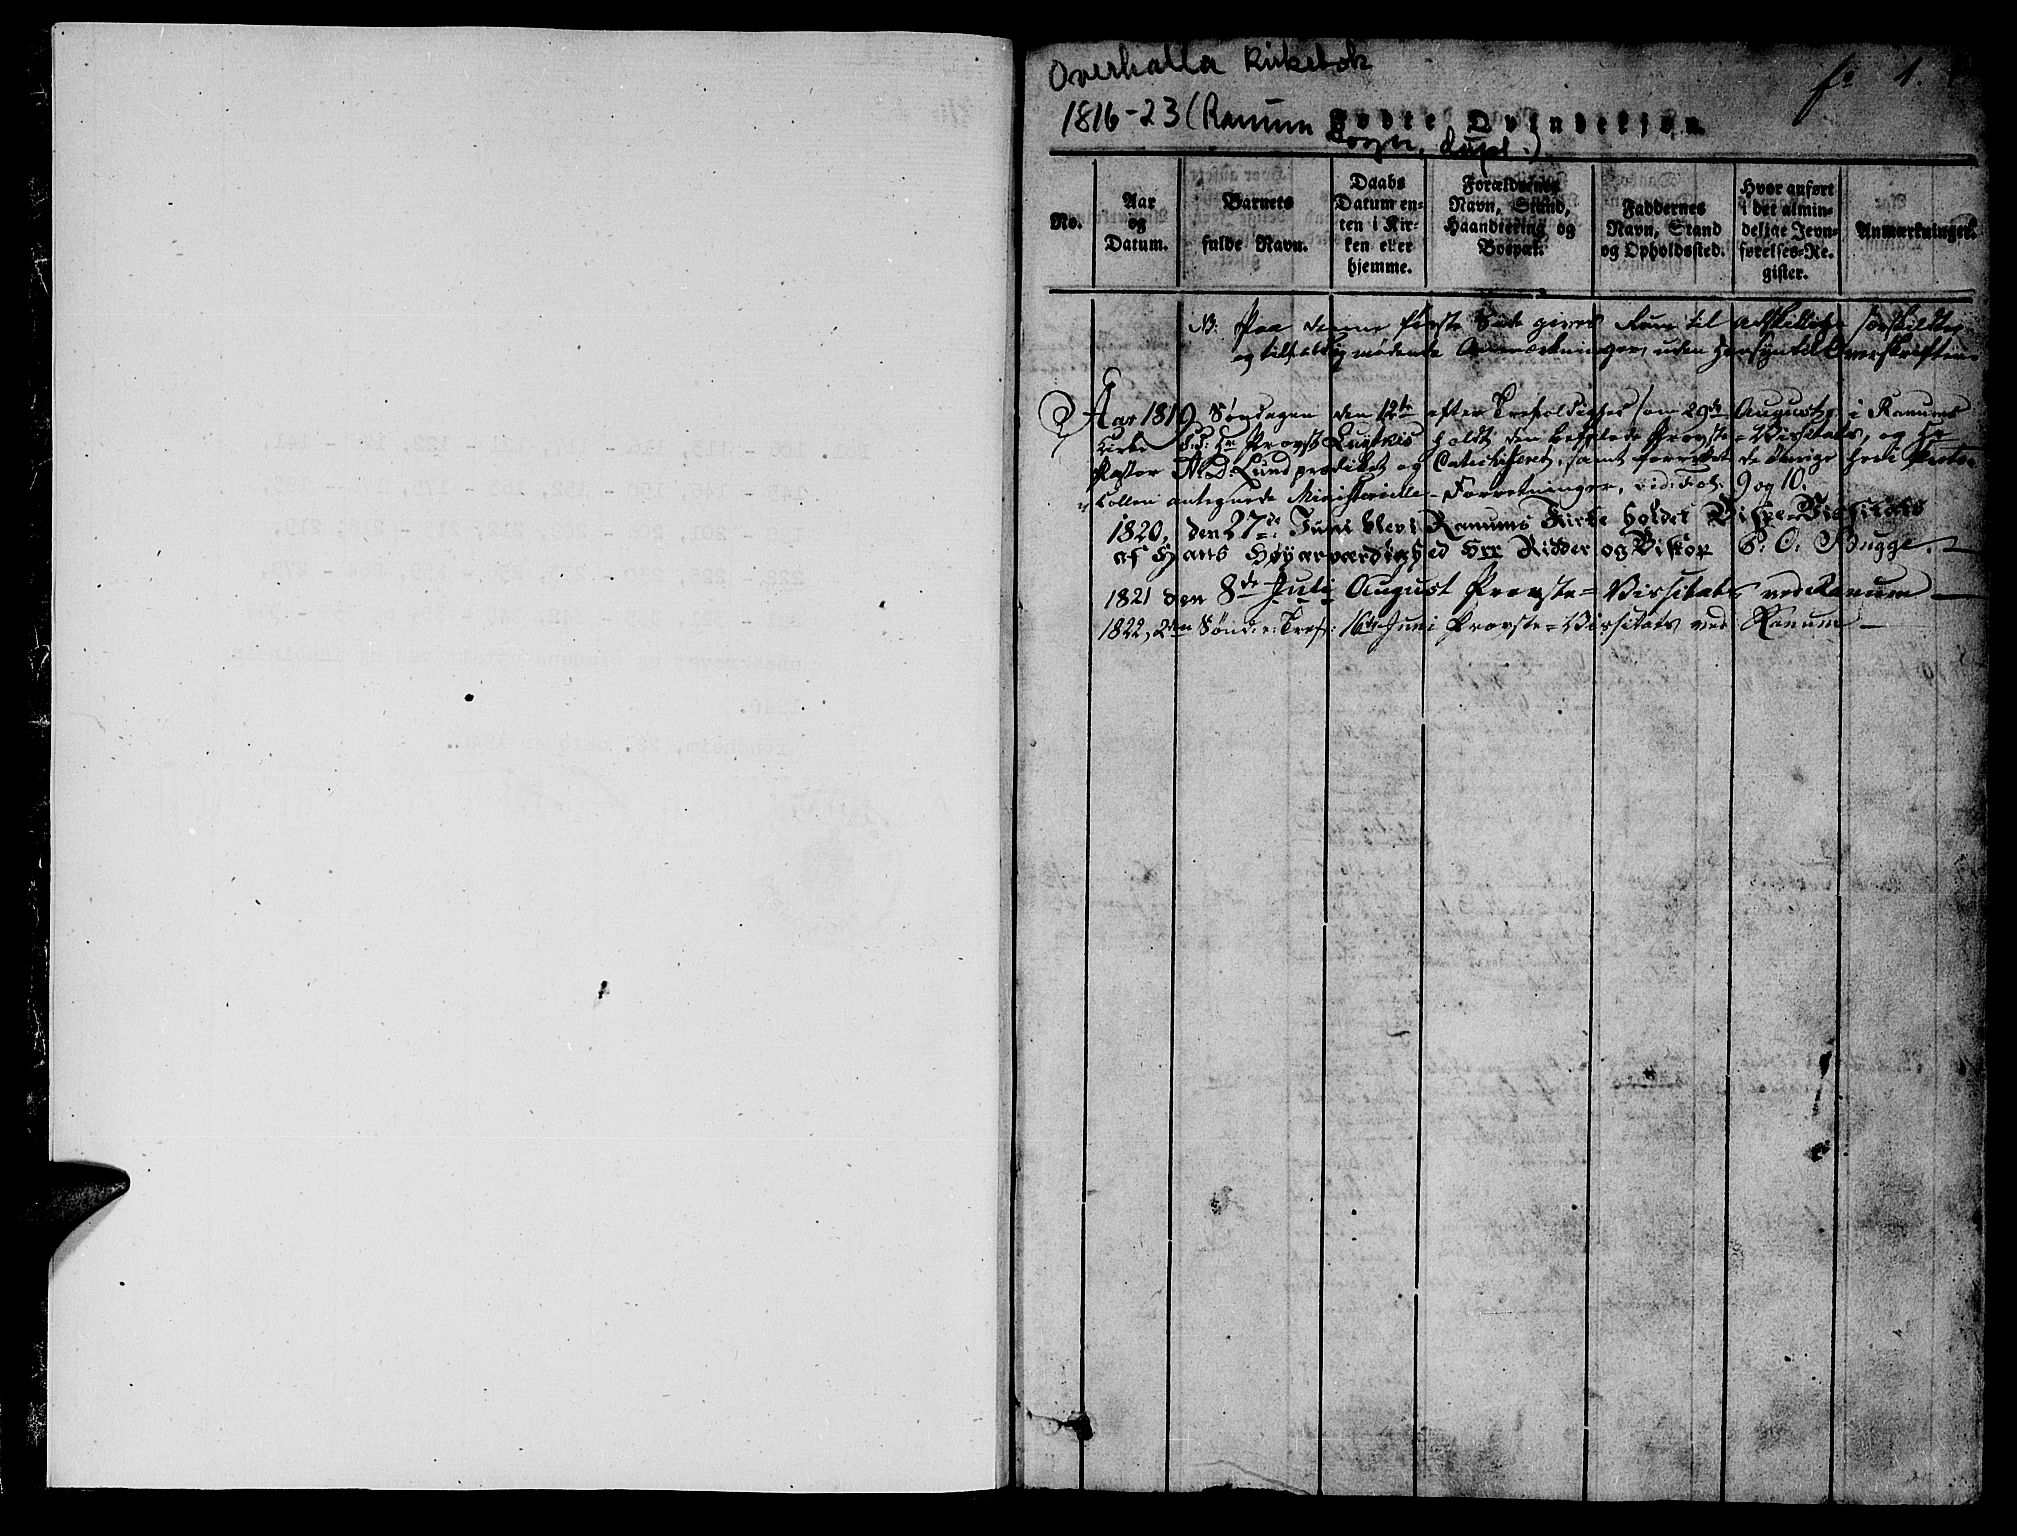 Overhalla Kirkebok
fo 1.
1816-23 (Ranum
Fødte Qvindekjøn.
Sogn, dupl.)
No.
Aar
og
Datum.
Barnets
fulde Navn.
Daabs
Datum en-
ten i Kir-
ken eller
hjemme.
Forældrenes
Navn, Stand,
Haandtering og
Bopæl.
Faddernes
Navn, Stand
og Opholdssted.
Hvor anført
i det almin-
delige Jevn-
førelses-Re-
gister.
Anmærkninger.
NB: Paa denne første Side gives Rum til adskillige
og uden Hensyn til Overskriften
Aar 1819 Søndagen den 12te efter Trefoldighed som 29de August i Ranums
Kirke Hr Provst holdt den befalede Provste-Visitats, og Hr
Pastor Lund prædiket og Catechiseret, samt forrettet de øvrige her i Proto-
collen antegnede Ministerielle-Forretninger, vid: Fol: 9 og 10.
1820, den 27de Juni blev i Ranums Kirke holdet Bispe-Visitats
af Hans Høyærværdighed Hrr Ridder og Biskop P: O: Bugge. —
1821 den 8de Juli August Provste=Visitats ved Ranum —
1822, 2den Sønd: e: Tref: 16de Juni Provste=Visitats ved Ranum —